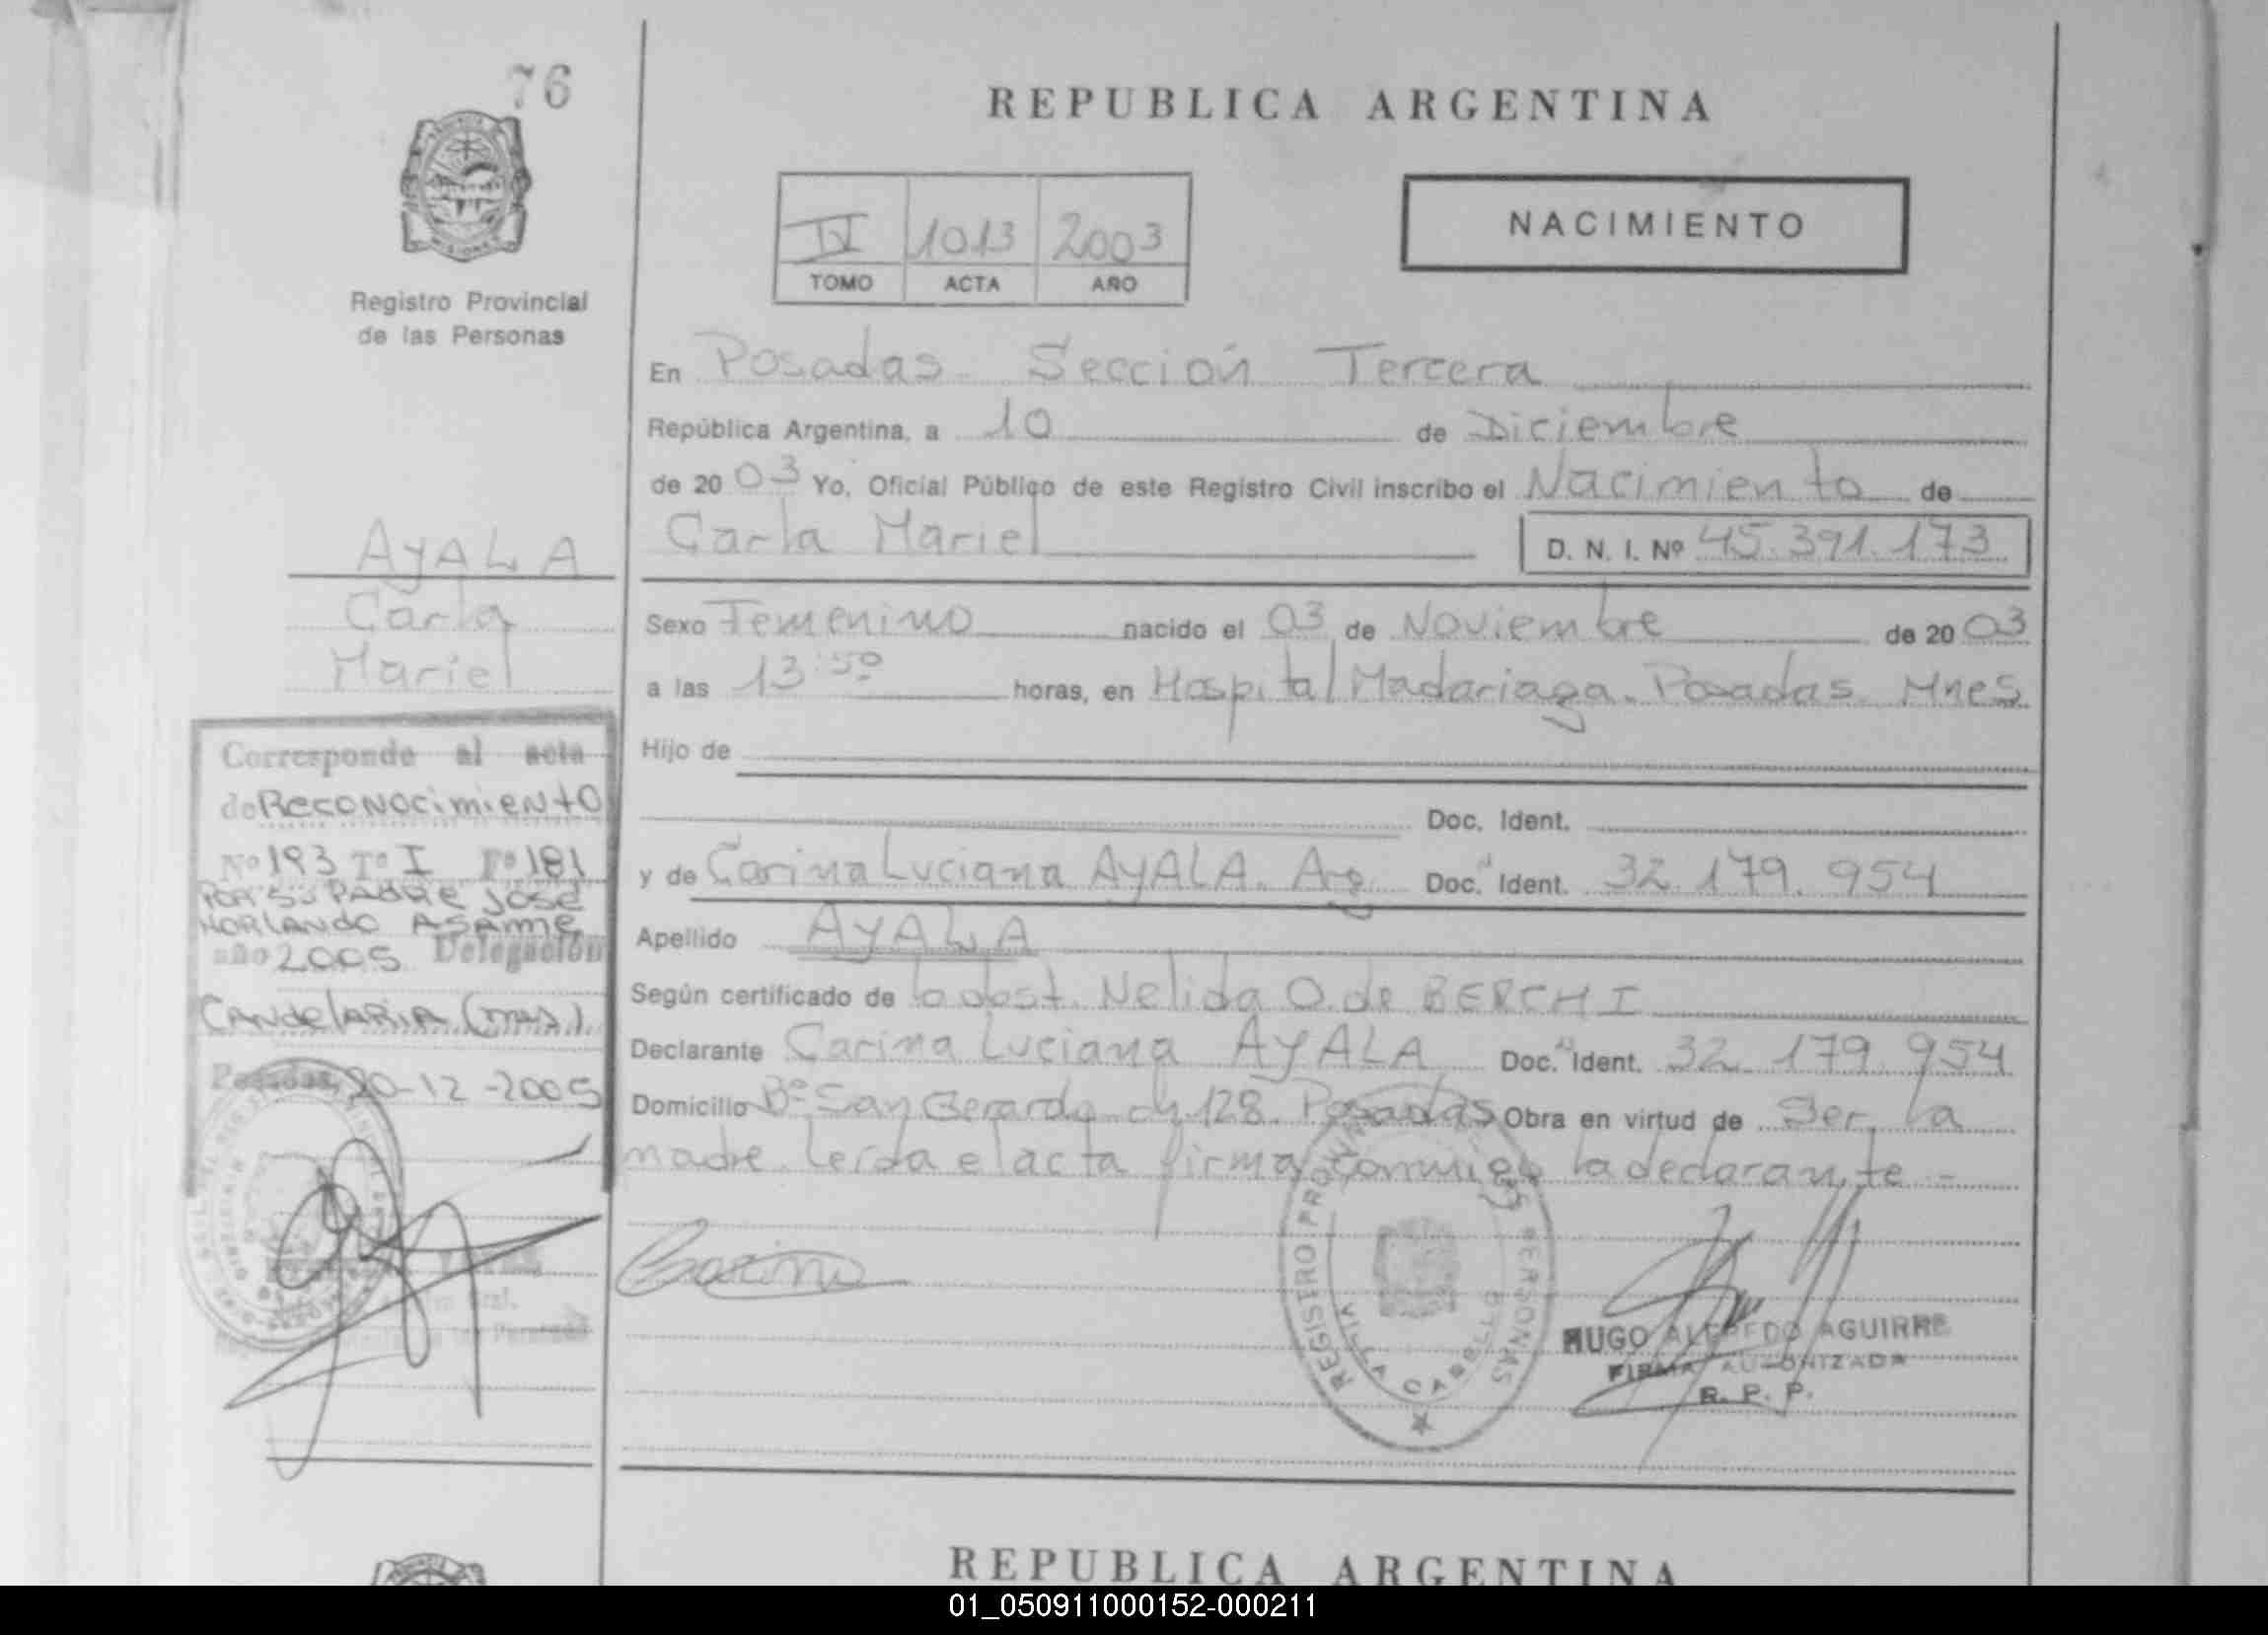 76
Registro Provincial
de las Personas
REPUBLICA ARGENTINA
IV 1013 2003
TOMO ACTA AÑO
NACIMIENTO
En Posadas Sección Tercera
República Argentina, a 10 de Diciembre
de 20 03 Yo, Oficial Público de este Registro Civil inscribo el Nacimiento de
Carla Mariel D. N. I. Nº 45.391.173
Sexo Femenino nacido el 03 de Noviembre de 20 03
a las 13:50 horas, en Hospital Madariaga. Posadas. Mnes
Hijo de
Doc. Ident.
y de Carina Luciana AYALA. Arg. Doc. Ident. 32.179.954
Apellido AYALA
Según certificado de la obst. Nelida O. de BERCHI
Declarante Carina Luciana AYALA Doc. Ident. 32.179.954
Domicilio Bº San Gerardo ch 128. Posadas Obra en virtud de Ser la
madre. Leída el acta firma conmigo la declarante -
Carina
REGISTRO PERSONAS
VILLA CABELLO
HUGO ALFREDO AGUIRRE
FIRMA AUTORIZADA
R. P. P.
AYALA
Carla
Mariel
Corresponde al acta
de Reconocimiento
Nº 193 Tº I Fº 181
POR SU PADRE JOSE
NORLANDO ASAIME
año 2005 Delegación
CANDELARIA (mns).
Posadas, 20-12-2005
REPUBLICA ARGENTINA
01_050911000152-000211